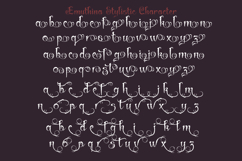 Emotikna Stylistic Character
a b c d e f g h i j k l m n o
p q r s t u v w x y z
a b c d e f g h i j k l m n o
p q r s t u v w x y z
a b c d e f g h i j k l m
n o p q r s t u v w x y z
a b c d e f g h i j k l m
n o p q r s t u v w x y z